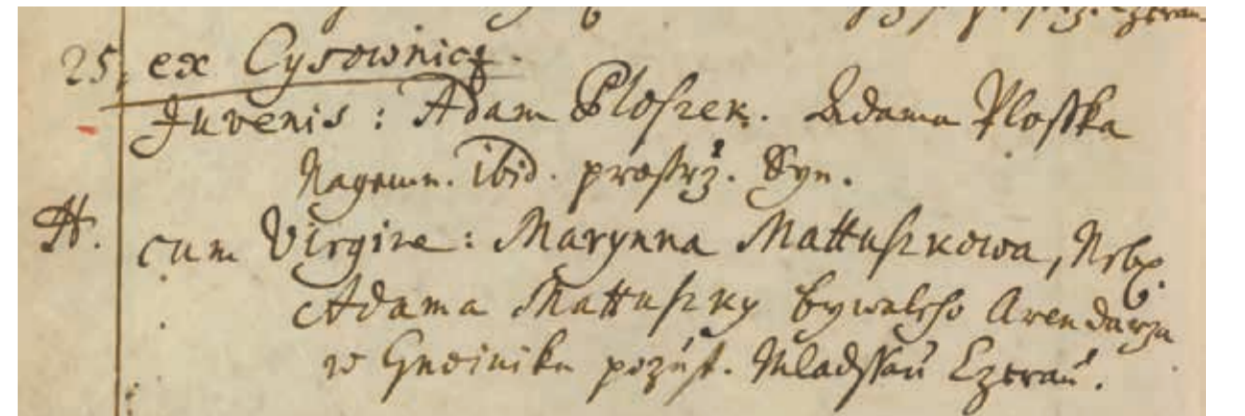 25. ex Cysownicz.
Juvenis: Adam Ploszek. Adama Plosska
Nagemn. ibid. prostrz. Syn.
H. cum Virgine: Marynna Mattuszkowa, Neb.
Adama Mattuszky bywaleho Arendarza
w Gnoiniku pozust. Mladssau Czerau.